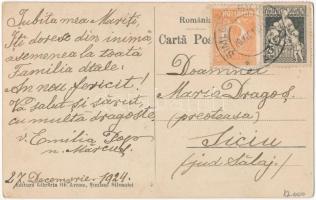 Iubita mea Mariți,
Îți doresc din inimă
asemenea la toată
Familia dtale:
An nou fericit!
Vă salut și sărut
cu multă dragoste
v. Emilia Pop
n. Mărcuș
27. Decemvrie. 1924.
Editura Librăria
România
Cartă Po
Doamnei
Maria Dragoș
(preoteasa)
Siciu
(jud. Sălaj.)